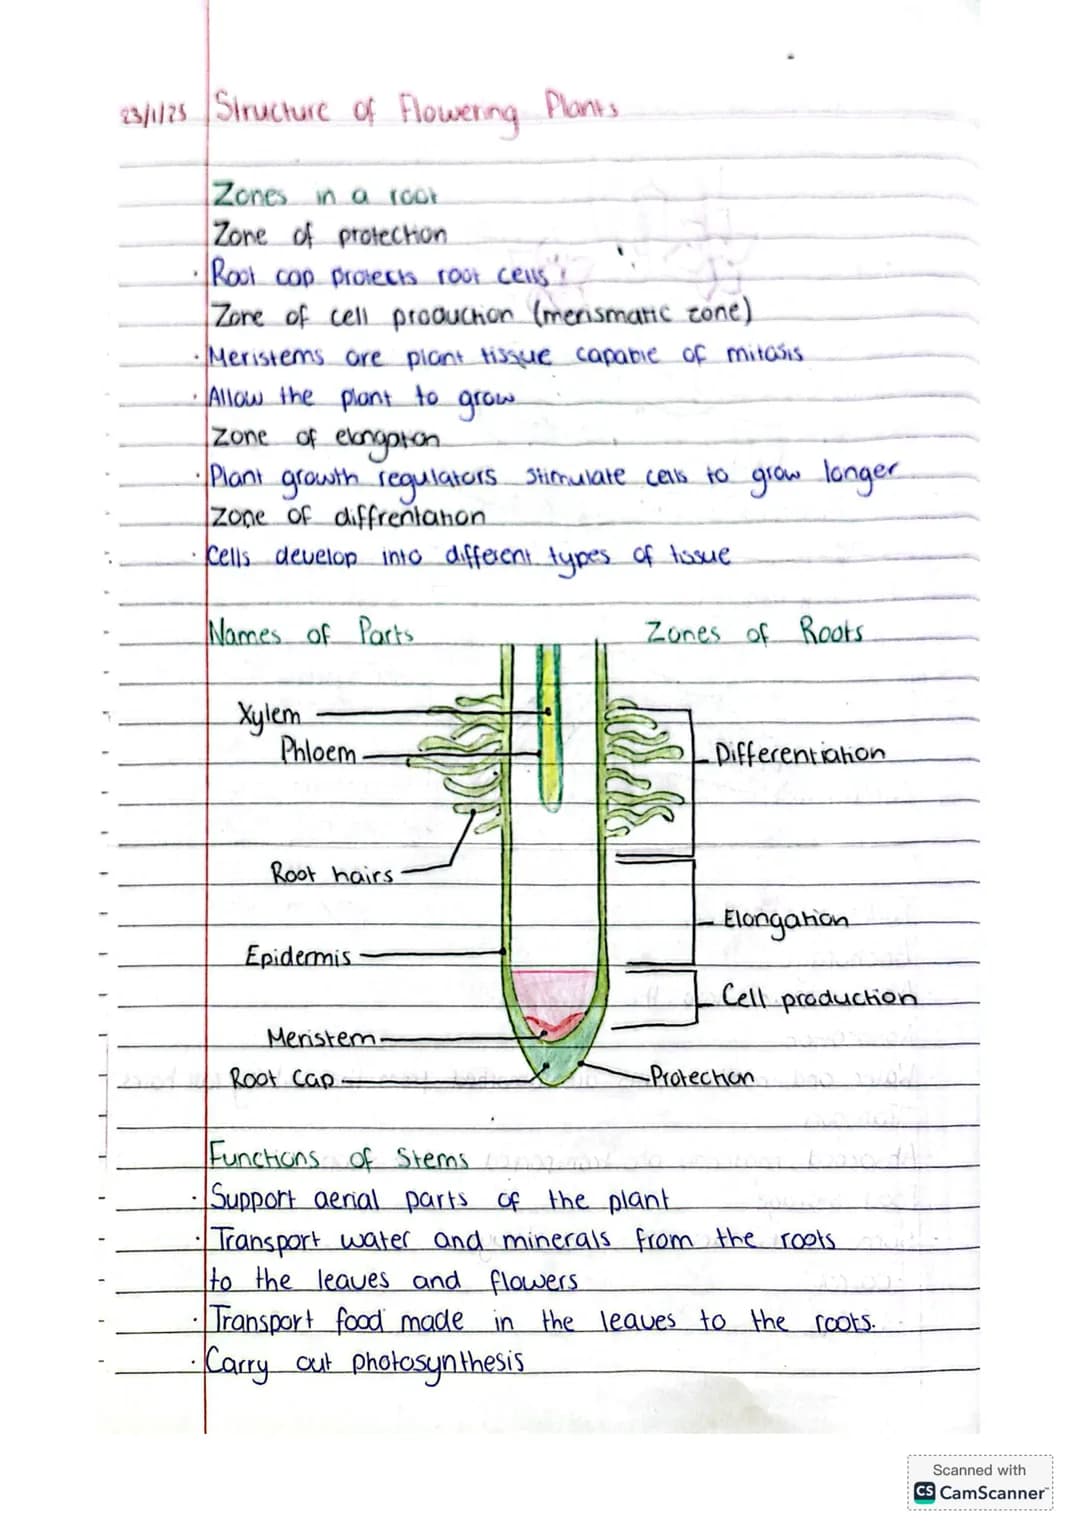 23/1/25 Structure of Flowering Plants
Zones in a root
Zone of protection
· Root cap protects root cells
Zone of cell production (merismatic zone)
· Meristems are plant tissue capable of mitosis
· Allow the plant to grow
Zone of elongation
· Plant growth regulators stimulate cells to grow longer
Zone of diffrentation
· Cells develop into different types of tissue
Names of Parts
Zones of Roots
Xylem
Phloem
Differentiation
Root hairs
Elongation
Epidermis
Cell production
Meristem
Root Cap
Protection
Functions of Stems
· Support aerial parts of the plant
· Transport water and minerals from the roots
to the leaves and flowers
· Transport food made in the leaves to the roots.
· Carry out photosynthesis
Scanned with
CS CamScanner